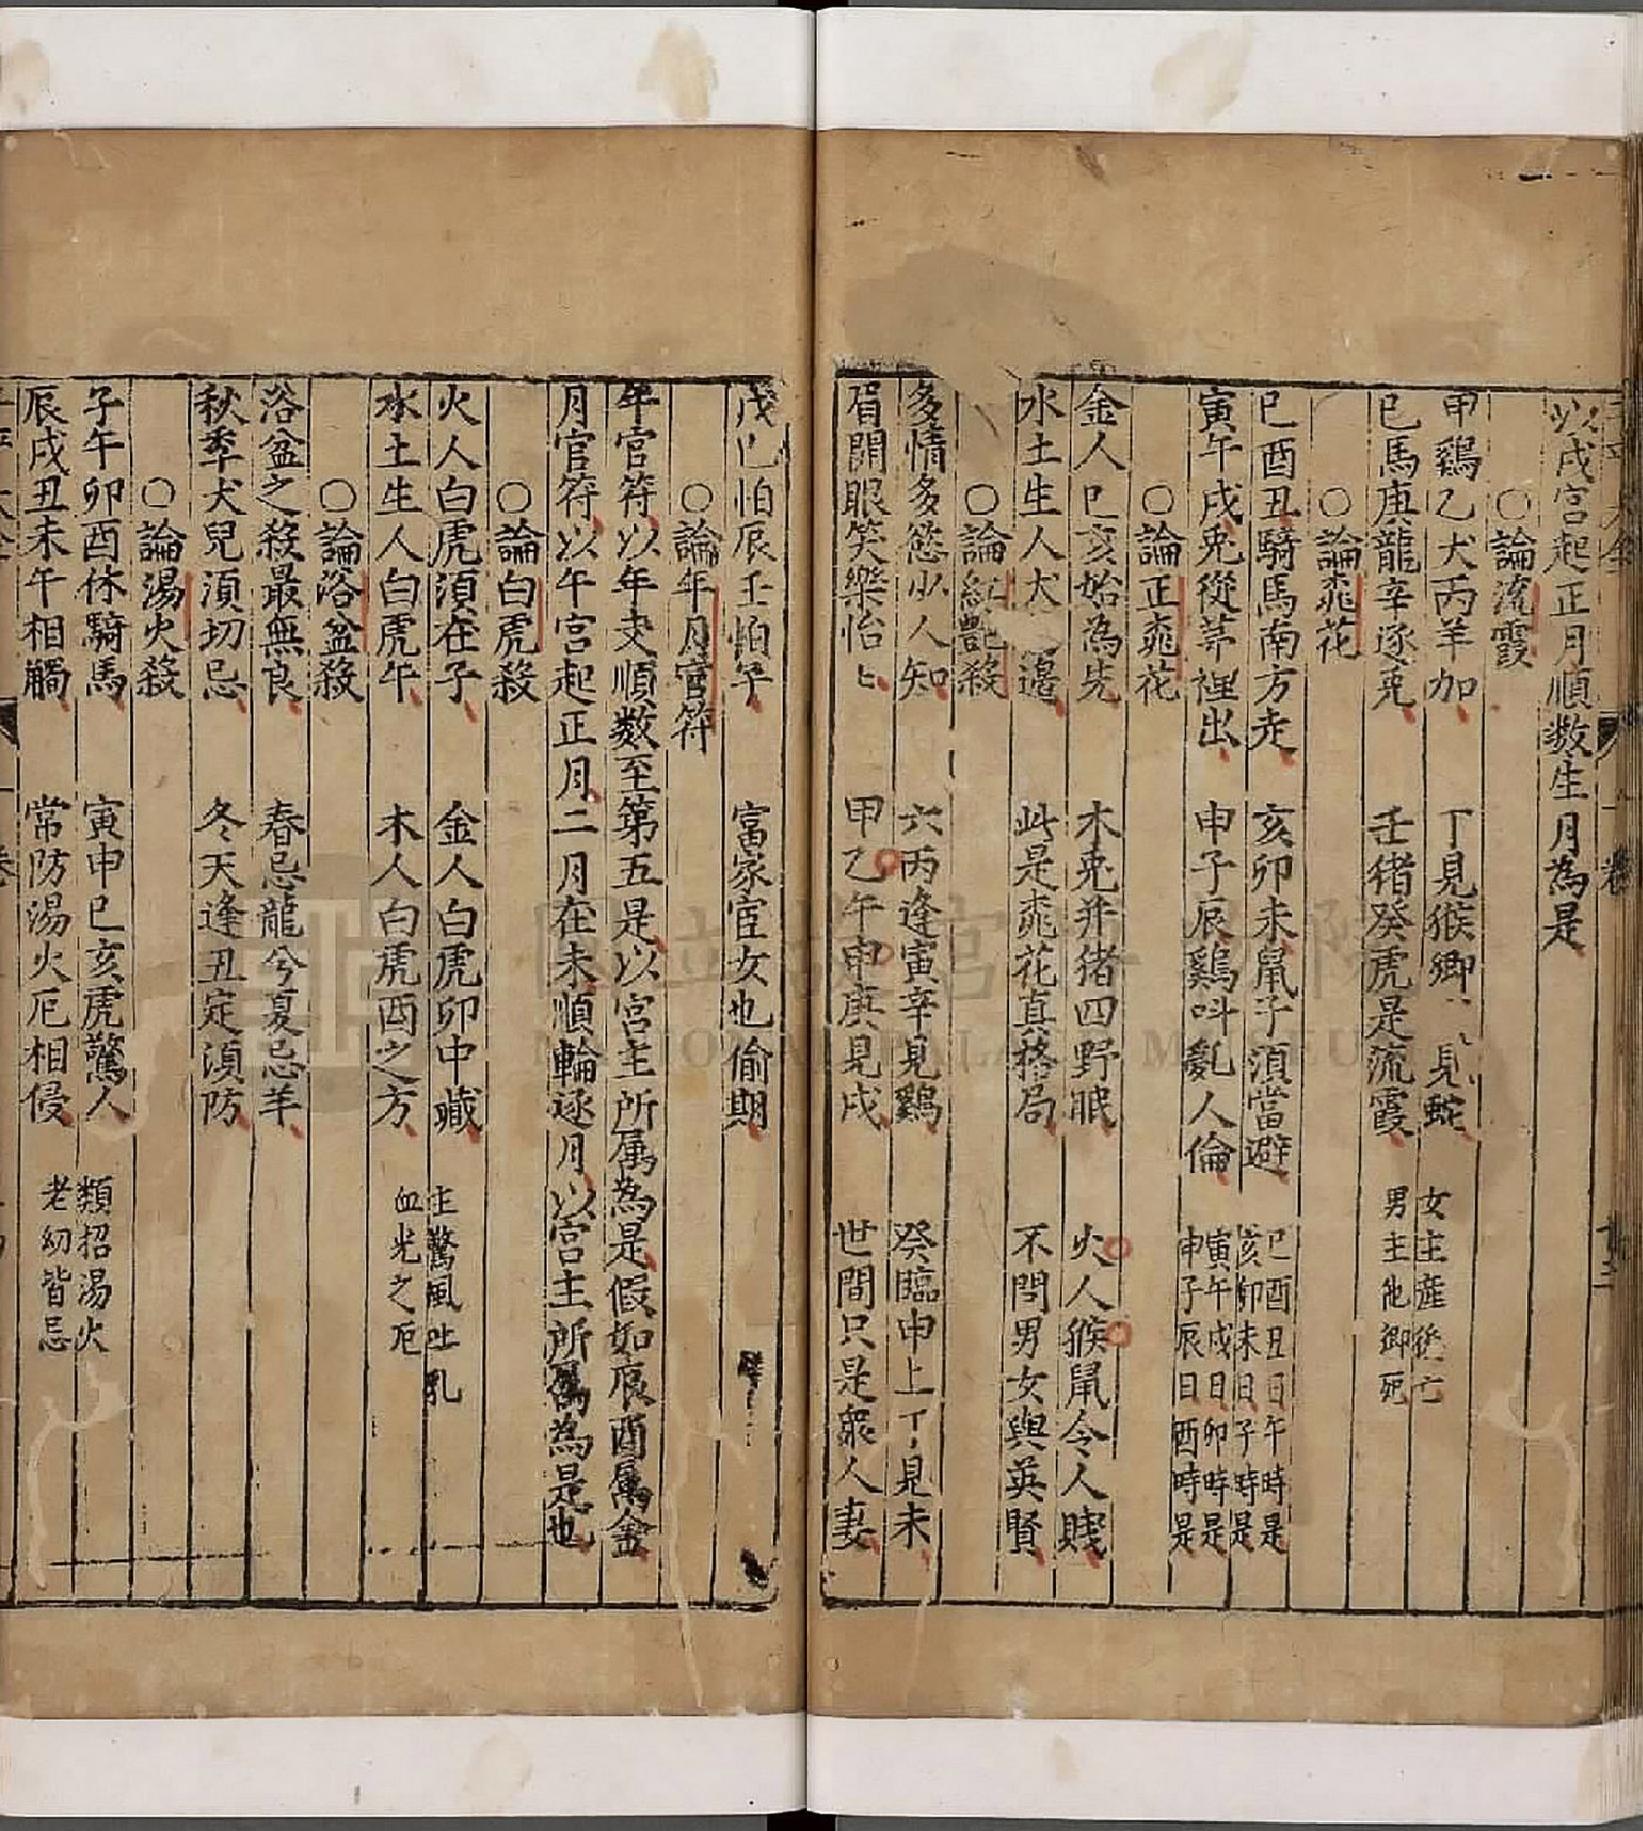 以戌宮起正月順数生月為是
○論流霞
甲鷄乙犬丙羊加　丁見猴鄉　見蛇　女主産後亡
巳馬庚龍辛逐兎　壬猪癸虎是流霞　男主他鄉死
○論桃花
巳酉丑騎馬南方走　亥卯未鼠子湏當避　巳酉丑日午時是　亥卯未日子時是
寅午戌兎從茅裡出　申子辰鷄呌亂人倫　寅午戌日卯時是　申子辰日酉時是
○論正桃花
金人巳亥始為先　木兎并猪四野眠　火人猴鼠令人賤
水土生人犬　邉　此是桃花真格局　不問男女與英賢
○論紅艷殺
多情多慾少人知　六丙逢寅辛見鷄　癸臨申上丁見未
眉開眼笑樂怡〻　甲乙午申庚見戌　世間只是衆人妻
戊巳怕辰壬怕子　富家宦女也偷期
○論年月官符
年官符以年支順数至第五是以宮主所属為是假如辰酉属金
月官符以午宮起正月二月在未順輪逐月以宮主所属為是也
○論白虎殺
火人白虎須在子　金人白虎卯中藏　主驚風吐乳
水土生人白虎午　木人白虎酉之方　血光之厄
○論浴盆殺
浴盆之殺最無良　春忌龍兮夏忌羊
秋季犬兒湏切忌　冬天逢丑定湏防
○論湯火殺
子午卯酉休騎馬　寅申巳亥虎驚人　類招湯火
辰戌丑未午相觸　常防湯火厄相侵　老幼皆忌